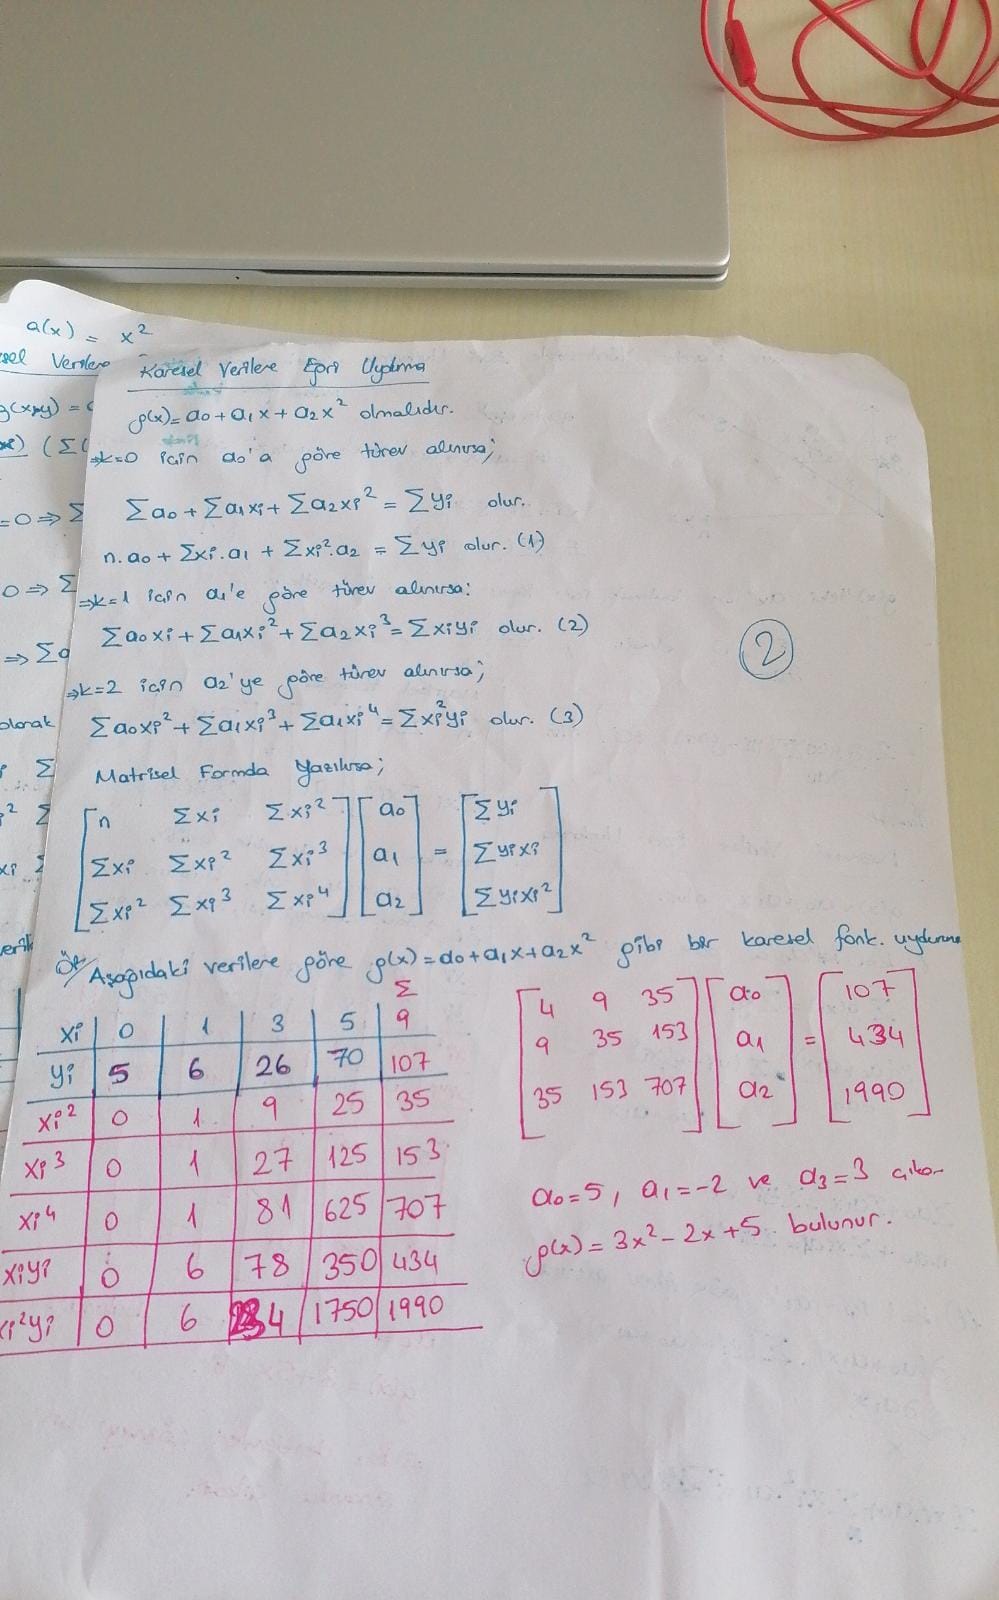 a(x) = x²
Karesel Verilere Eğri Uydurma
g(x)=a0+a1x+a2x² olmalıdır.
⇒k=0 için a0'a göre türev alınırsa;
Σa0+Σa1xi+Σa2xi²=Σyi olur.
n.a0+Σxi.a1+Σxi².a2=Σyi olur. (1)
⇒k=1 için a1'e göre türev alınırsa:
Σa0xi+Σa1xi²+Σa2xi³=Σxiyi olur. (2)
2
⇒k=2 için a2'ye göre türev alınırsa;
Σa0xi²+Σa1xi³+Σa1xi⁴=Σxi²yi olur. (3)
Matrisel Formda Yazılırsa;
[n Σxi Σxi²] [a0] [Σyi]
[Σxi Σxi² Σxi³] [a1] = [Σyixi]
[Σxi² Σxi³ Σxi⁴] [a2] [Σyixi²]
Ör/ Aşağıdaki verilere göre g(x)=a0+a1x+a2x² gibi bir karesel fonk. uydurunuz
Σ
xi | 0 | 1 | 3 | 5 | 9
yi | 5 | 6 | 26 | 70 | 107
xi² | 0 | 1 | 9 | 25 | 35
xi³ | 0 | 1 | 27 | 125 | 153
xi⁴ | 0 | 1 | 81 | 625 | 707
xiyi | 0 | 6 | 78 | 350 | 434
xi²yi | 0 | 6 | 234 | 1750 | 1990
[4 9 35] [a0] [107]
[9 35 153] [a1] = [434]
[35 153 707] [a2] [1990]
a0=5, a1=-2 ve a3=3 çıkar
g(x)=3x²-2x+5 bulunur.